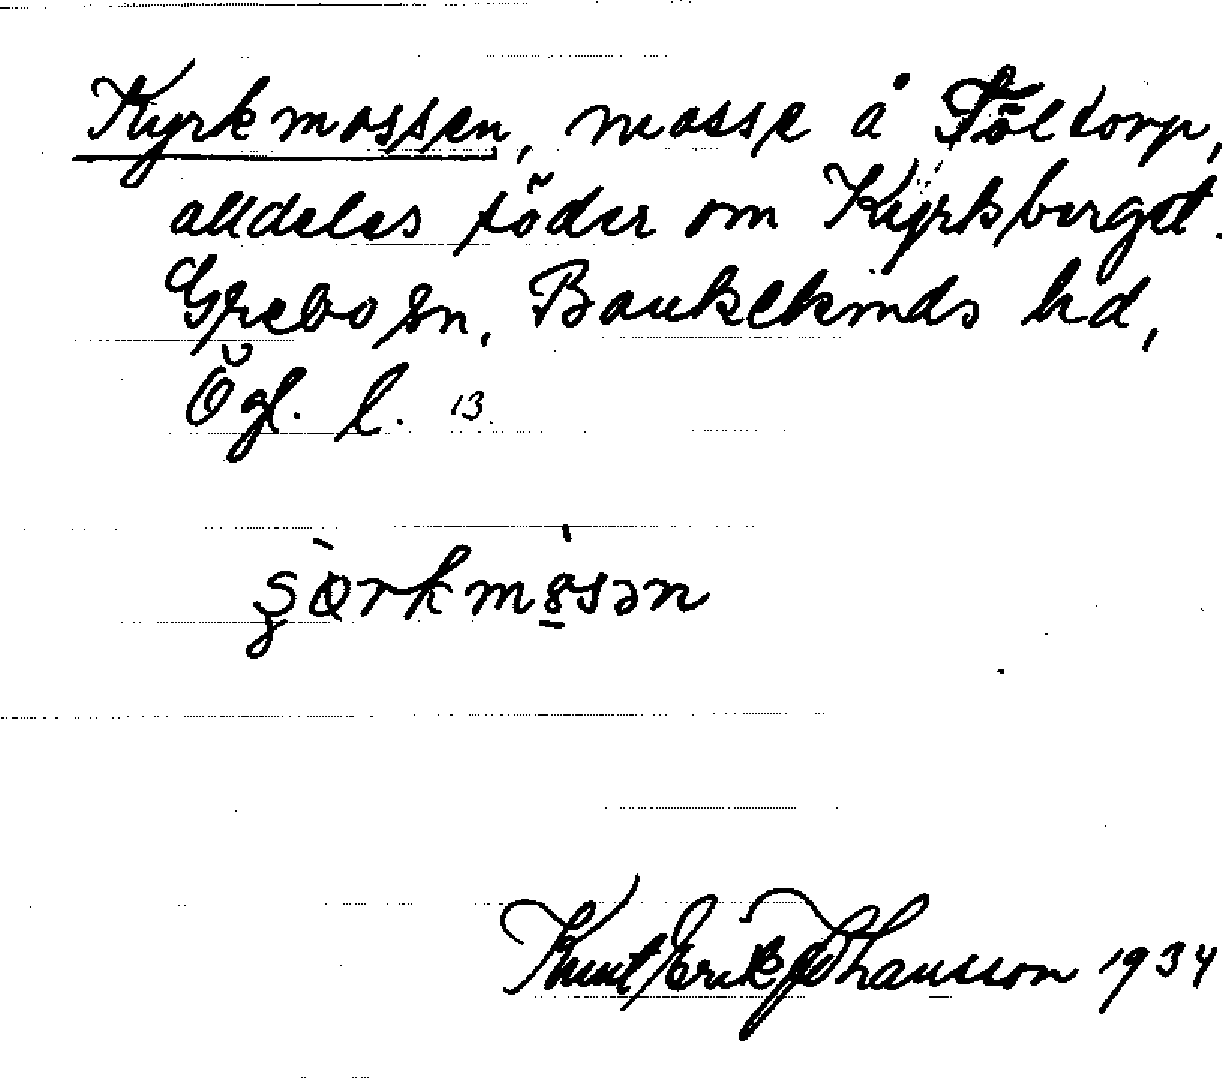 Kyrkmossen, mosse å Föltorp,
alldeles söder om Kyrkberget.
Grebo sn, Bankekinds hd,
Ögl. l. 13.
Knut Erik Johansson 1934